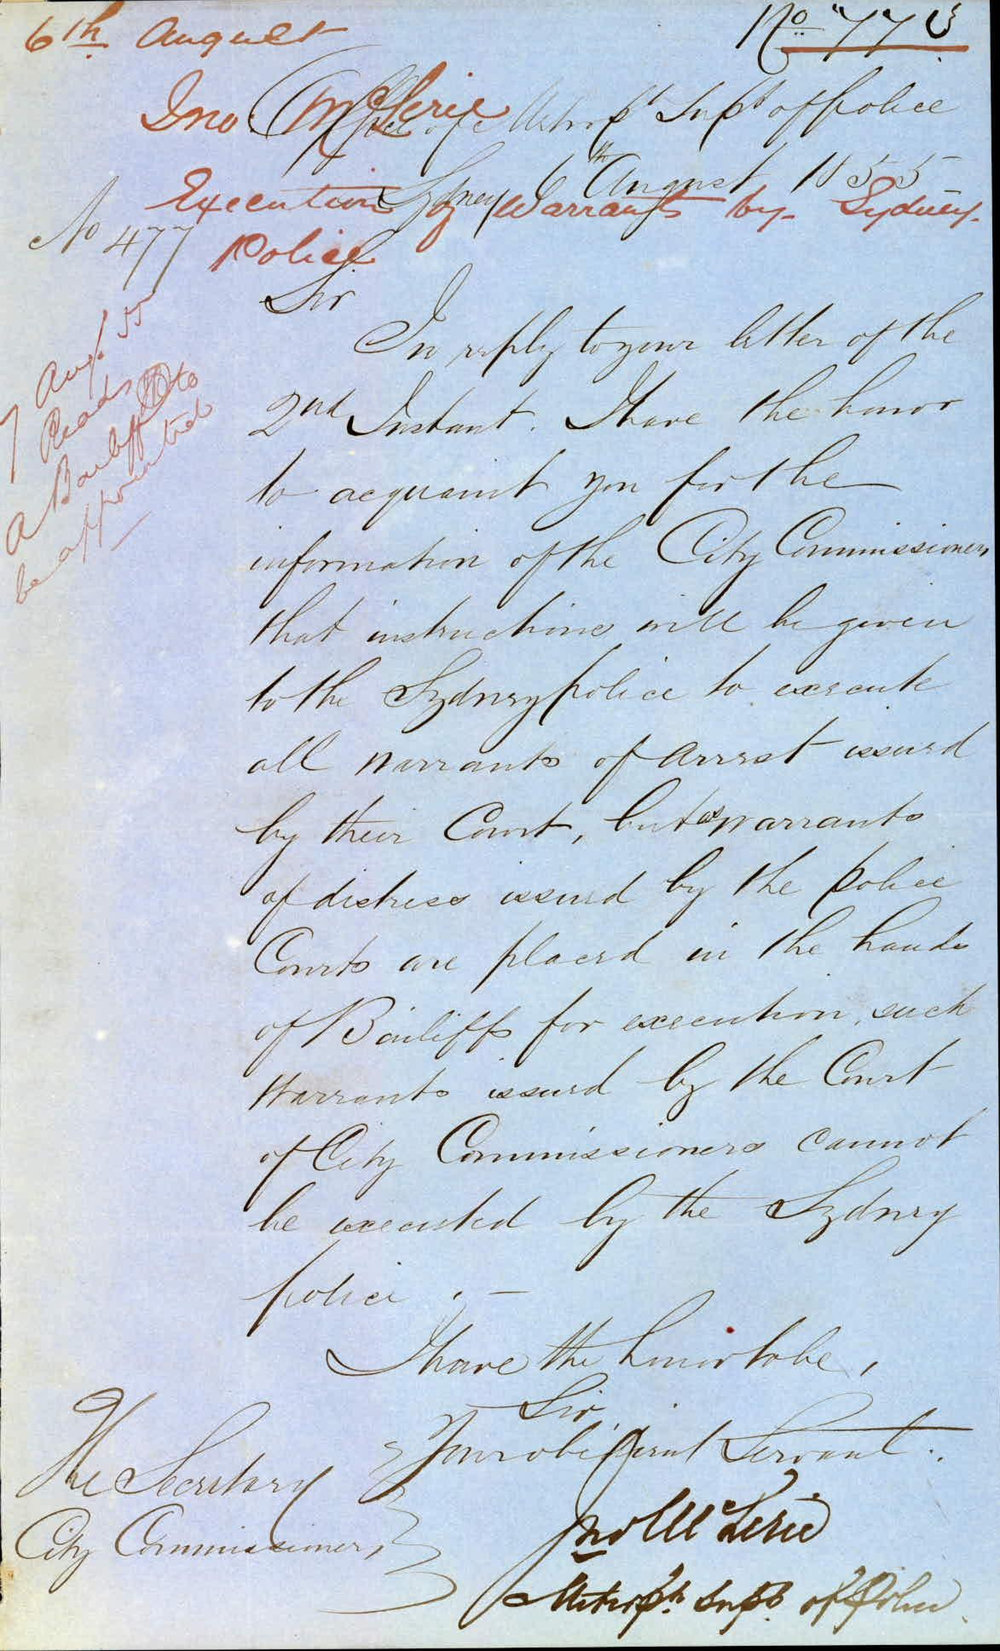 6th August
No 773
Jno McLerie
Office of Metrop Supt of police
Sydney 6th August 1855
Execution of Warrants by Sydney
Police
No 477
7 Augt 55
Read
A Bailiff to
be appointed
Sir
In reply to your letter of the
2nd Instant. I have the honor
to acquaint you for the
information of the City Commissioners
that instructions will be given
to the Sydney police to execute
all warrants of arrest issued
by their Court, but as warrants
of distress issued by the police
Courts are placed in the hands
of Bailiffs for execution, such
warrants issued by the Court
of City Commissioners cannot
be executed by the Sydney
police. —
I have the honor to be,
Sir
Your obedient Servant.
Jno McLerie
Metropn Supt of Police
The Secretary
City Commissioners